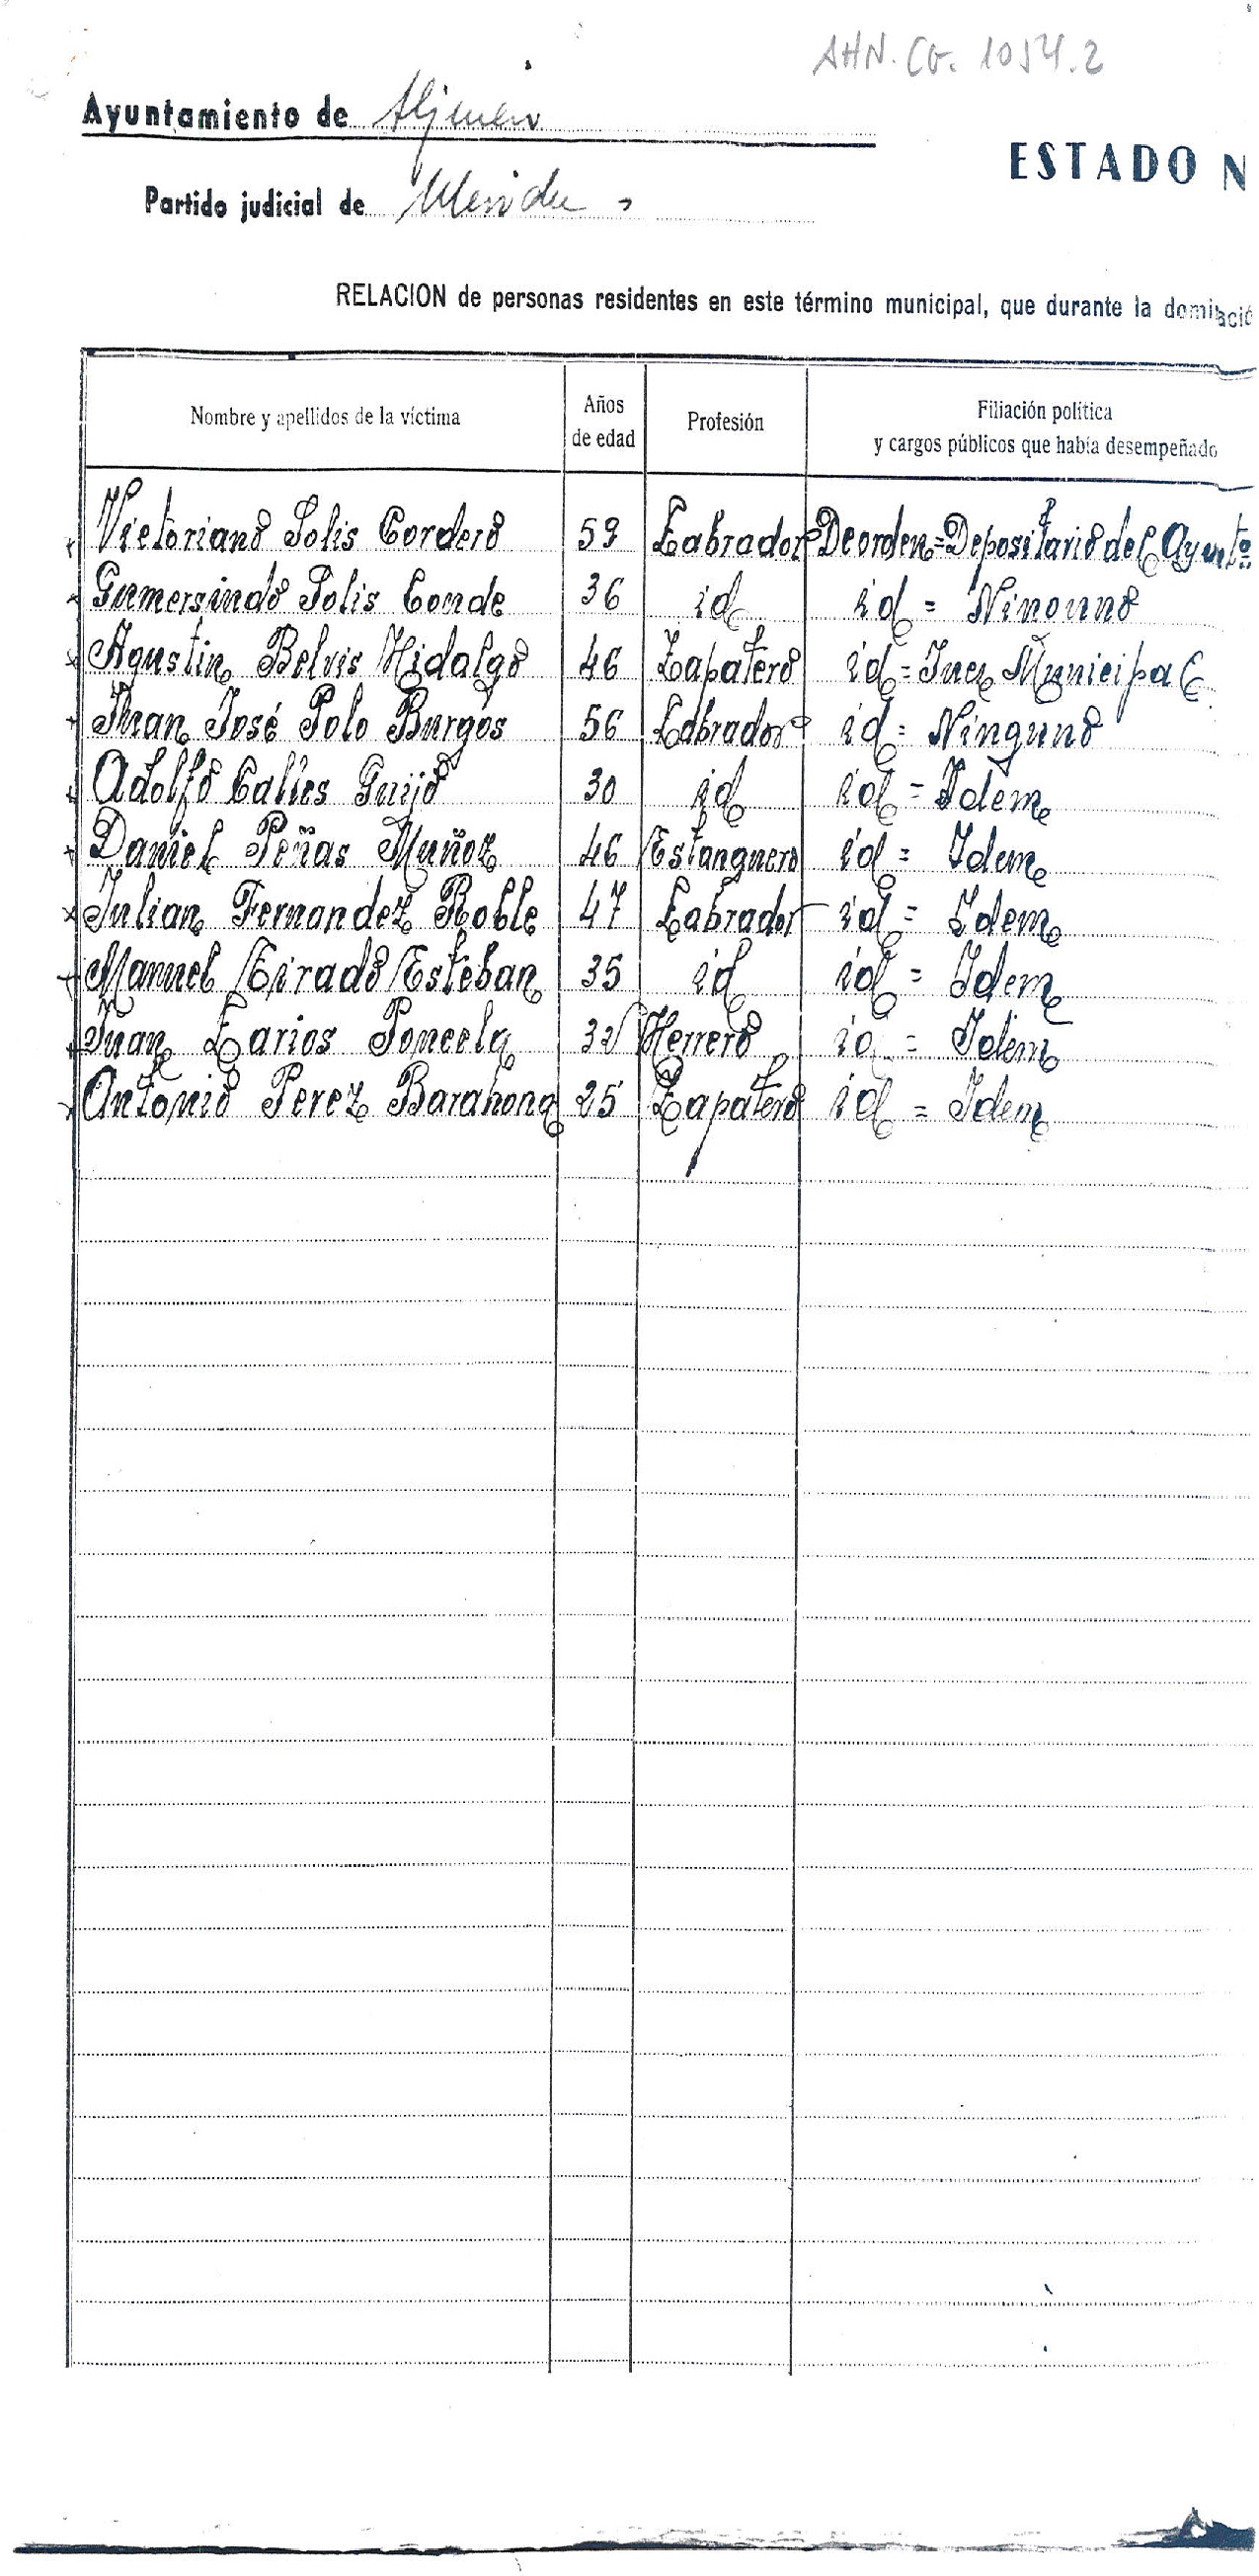 AHN. CG. 1054.2
Ayuntamiento de Aljucen
ESTADO N
Partido judicial de Merida
RELACION de personas residentes en este término municipal, que durante la dominació
Nombre y apellidos de la víctima Años de edad Profesión Filiación política y cargos públicos que había desempeñado
Victoriano Solis Cordero 59 Labrador De orden = Depositario del Ayunto
Gumersindo Solis Conde 36 id id = Ninguno
Agustin Belvis Hidalgo 46 Zapatero id = Juez Municipal
Juan José Polo Burgos 56 Labrador id = Ninguno
Adolfo Calles Guijo 30 id id = Idem
Daniel Peñas Muñoz 46 Estanquero id = Idem
Julian Fernandez Roble 47 Labrador id = Idem
Manuel Eirado Esteban 35 id id = Idem
Juan Larios Poncela 32 Herrero id = Idem
Antonio Perez Barahona 25 Zapatero id = Idem